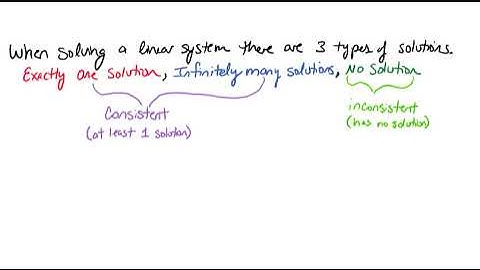 When solving a linear system there are 3 types of solutions.
Exactly one solution, Infinitely many solutions, No solution
Consistent
(at least 1 solution)
inconsistent
(has no solution)